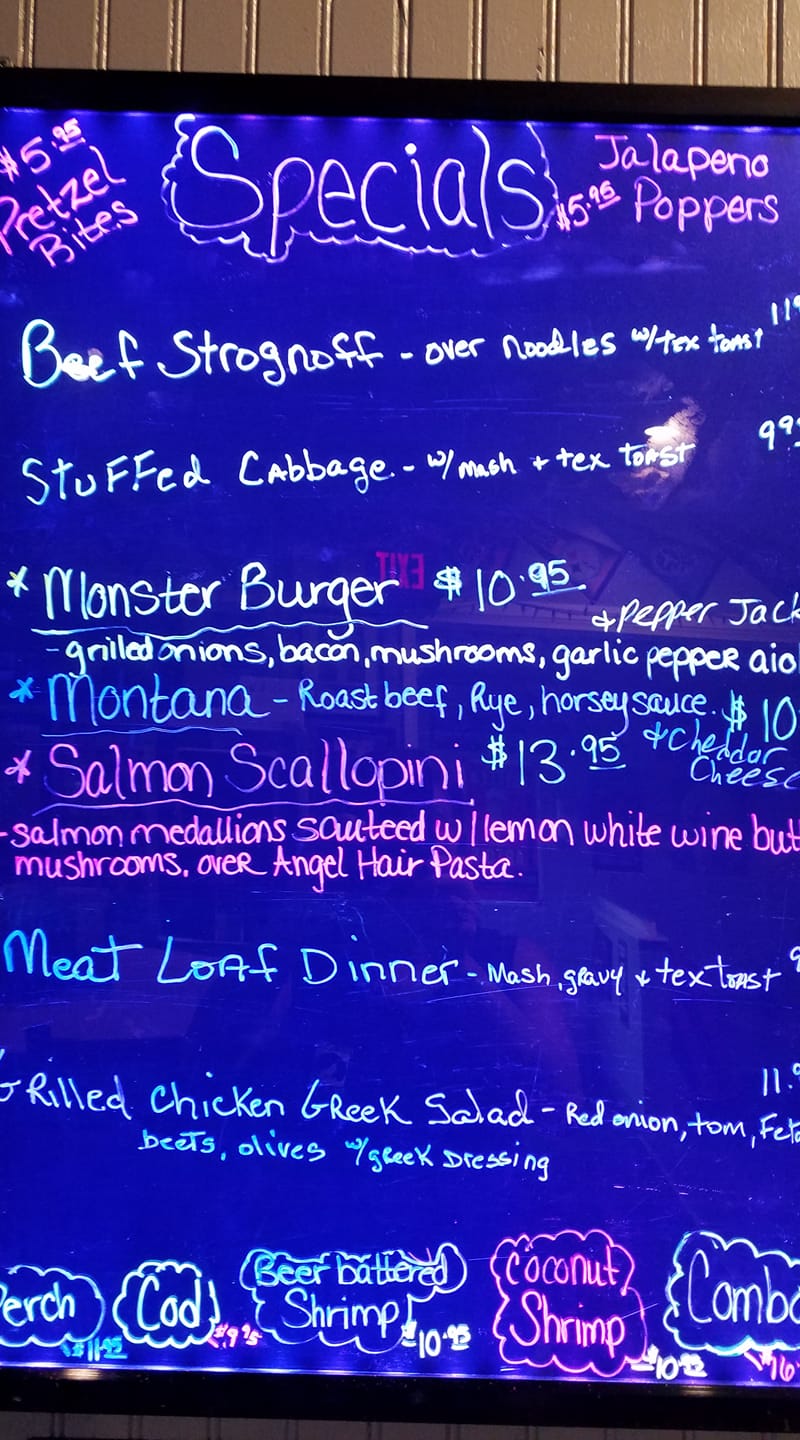 $5.95
Pretzel
Bites
Specials
Jalapeno
$5.95 Poppers
Beef Strognoff - over noodles w/tex toast 11
Stuffed Cabbage - w/ mash + tex toast 99
EXIT
* Monster Burger $10.95
& Pepper Jack
- grilled onions, bacon, mushrooms, garlic pepper aio
* Montana - Roast beef, Rye, horsey sauce. $10
& Cheddar
Cheese
* Salmon Scallopini $13.95
- salmon medallions sauteed w/ lemon white wine but
mushrooms. over Angel Hair Pasta.
Meat Loaf Dinner - Mash, gravy + tex toast 9
Grilled Chicken Greek Salad - Red onion, tom, Feta 11.9
beets, olives w/greek Dressing
Perch
$11.95
Cod
$9.95
Beer battered
Shrimp
$10.95
Coconut
Shrimp
$10.95
Combo
$16.